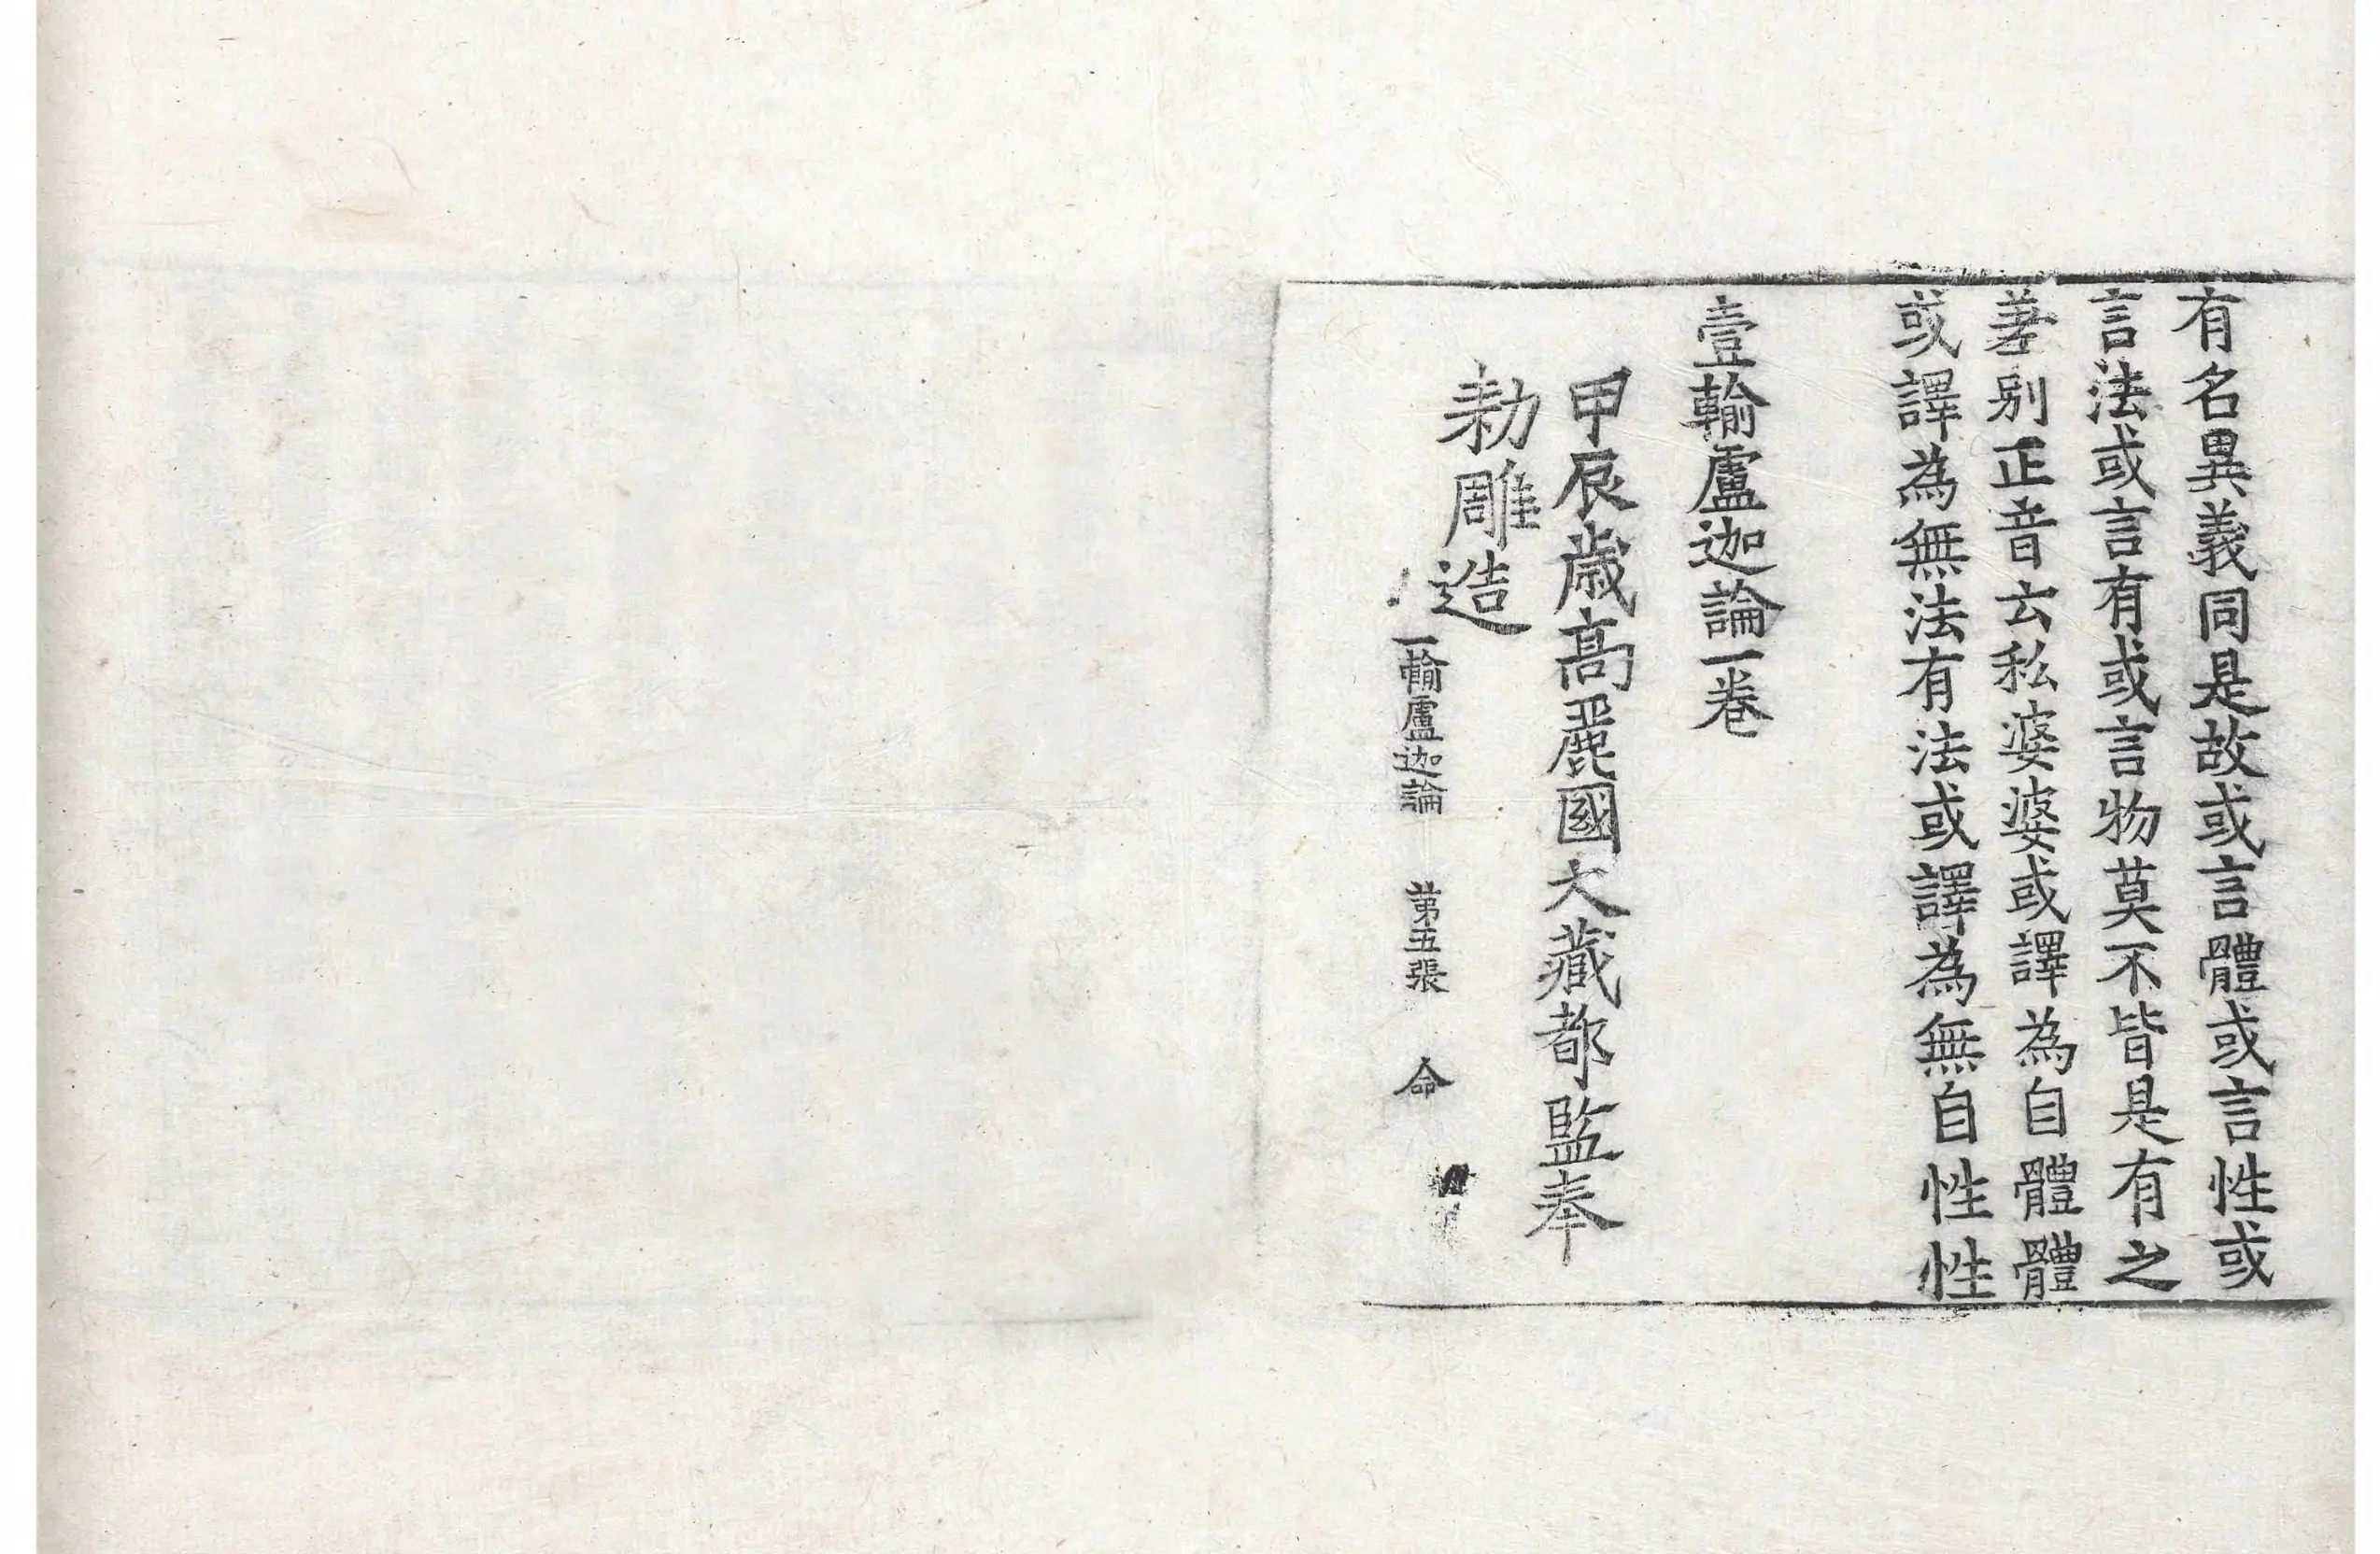 有名異義同是故或言體或言性或
言法或言有或言物莫不皆是有之
差別正音云私婆婆或譯為自體體
或譯為無法有法或譯為無自性性
壹輸盧迦論一卷
甲辰歲高麗國大藏都監奉
勅雕造
一輸盧迦論 第五張 命